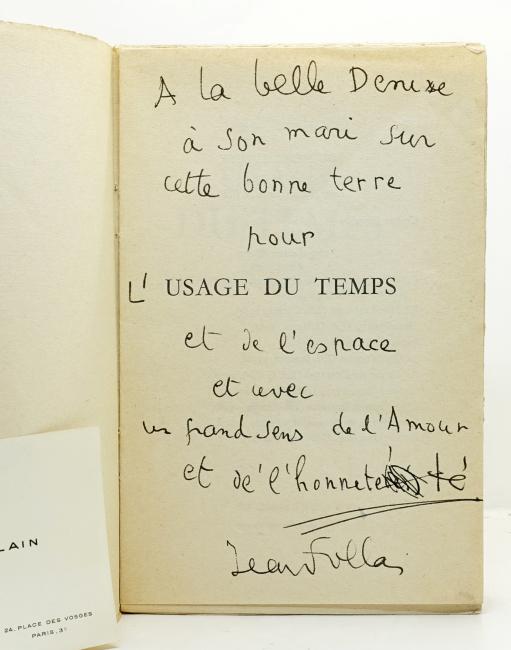 A la belle Denise
à son mari sur
cette bonne terre
pour
L' USAGE DU TEMPS
et de l'espace
et avec
un grand sens de l'Amour
et de l'honneteté
Jean Follain
LAIN
24, PLACE DES VOSGES
PARIS, 3e